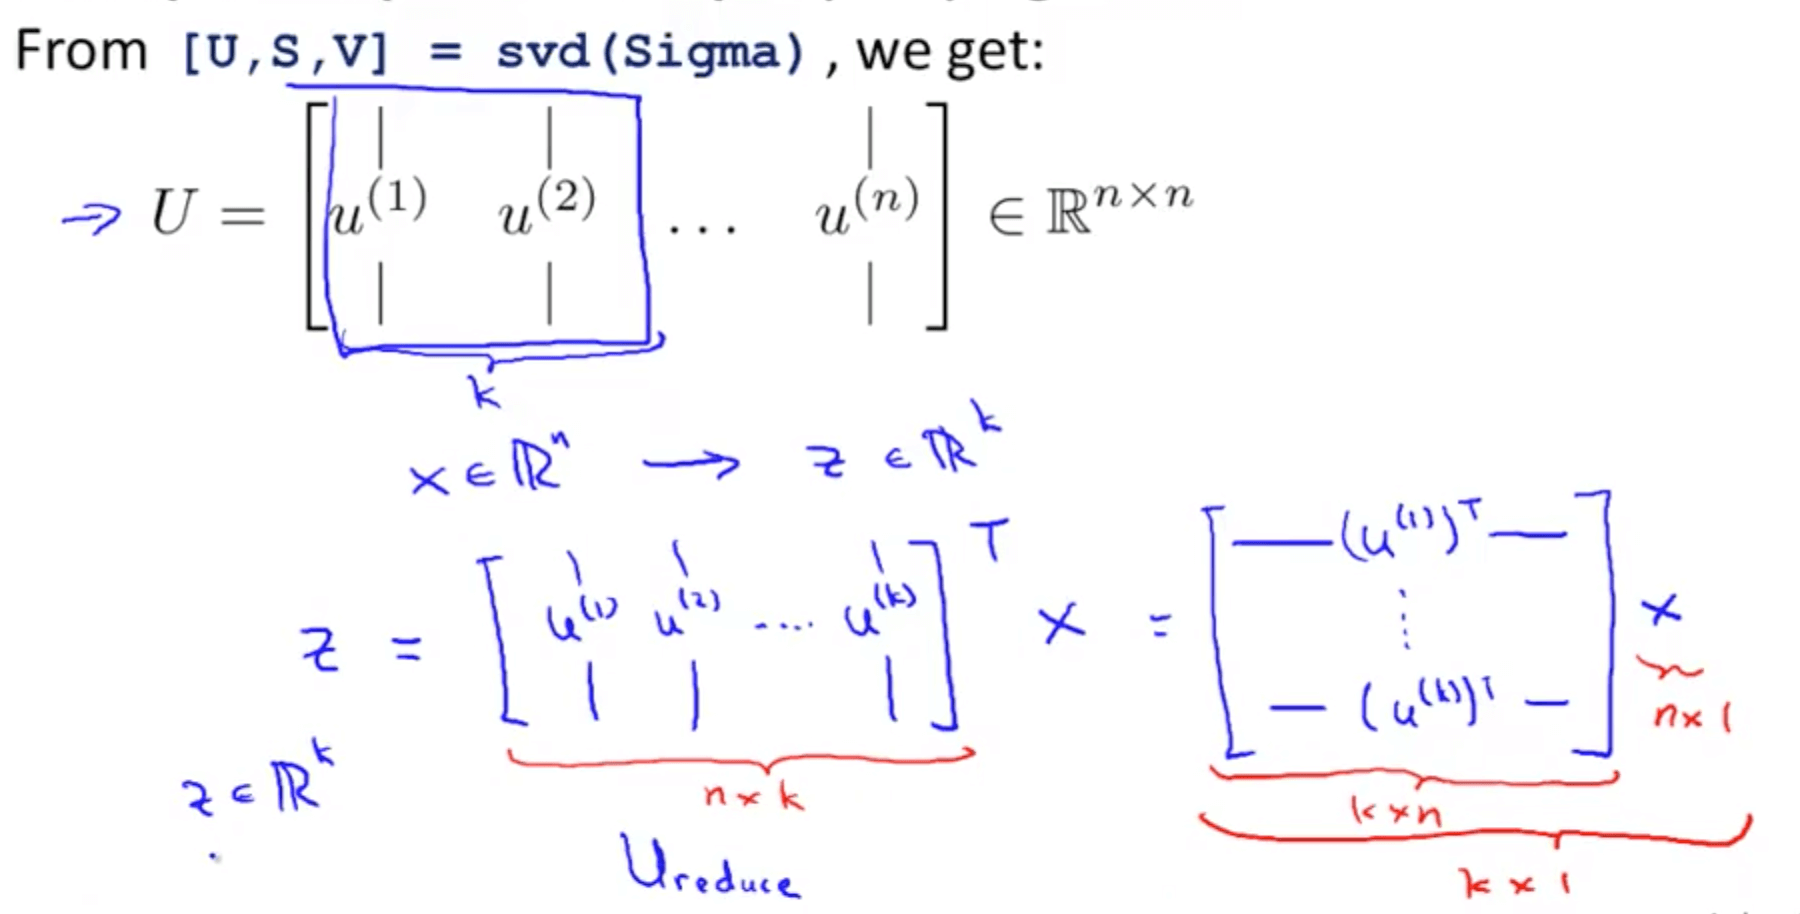 From [U,S,V] = svd(Sigma) , we get:
⇒ U = [ u^(1) u^(2) ... u^(n) ] ∈ ℝ^{n×n}
k
x ∈ ℝ^n → z ∈ ℝ^k
z = [ u^(1) u^(2) .... u^(k) ]^T x = [ — (u^(1))^T — ⋮ — (u^(k))^T — ] x
n×1
z ∈ ℝ^k
n×k
k×n
U reduce
k×1